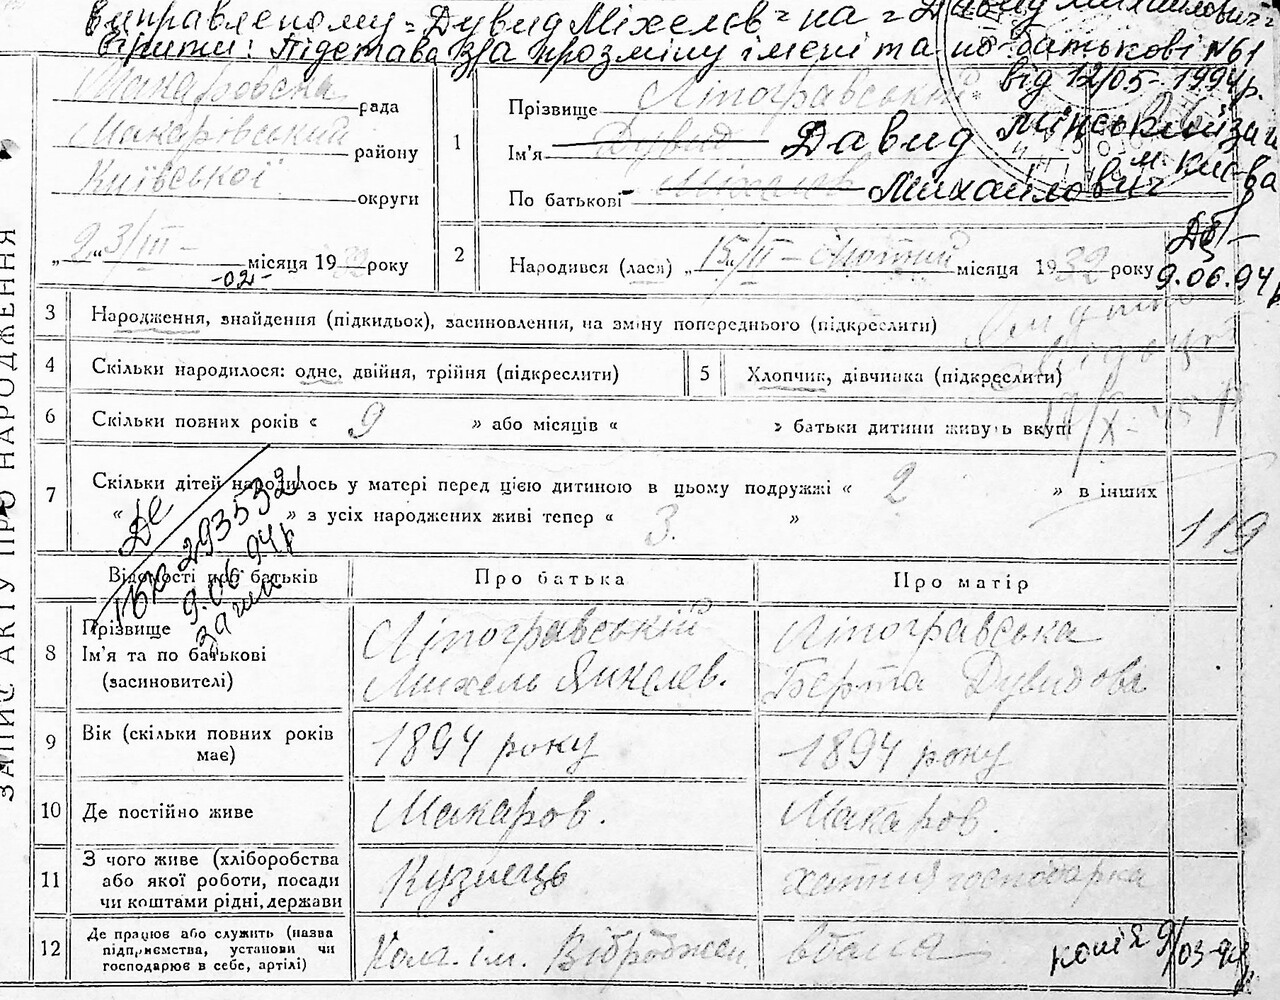 Виправленому "Дувид Міхелєв" на "Давид Михайлович"
вірити: Підстава з/а про зміну імені та по-батькові №61
від 12/05-1994р.
Мінський заг
м. Києва
Макаровська рада
Макарівський району
Київської округи
„2„ 3/III - місяця 1932 року
-02-
1 Прізвище Ліпогравський
Ім'я Дувид Давид
По батькові Міхелєв Михайлович
2 Народився (лася) „15„/II - Лютий місяця 1932 року
9.06.94р
ЗАПИС АКТУ ПРО НАРОДЖЕННЯ
3 Народження, знайдення (підкидьок), засиновлення, на зміну попереднього (підкреслити)
4 Скільки народилося: одне, двійня, трійня (підкреслити)
5 Хлопчик, дівчинка (підкреслити)
6 Скільки повних років « 9 » або місяців « » батьки дитини живуть вкупі
7 Скільки дітей народилось у матері перед цією дитиною в цьому подружжі « 2 » в інших
« » з усіх народжених живі тепер « 3. »
119
293532
9.06.94р
Відомості про батьків Про батька Про матір
8 Прізвище Ліпогравський Ліпогравська
Ім'я та по батькові Михель Янкелев. Берта Дувидова
(засиновителі)
9 Вік (скільки повних років має) 1894 року 1894 року
10 Де постійно живе Макаров. Макаров.
11 З чого живе (хліборобства
або якої роботи, посади Кузнець хатня господарка
чи коштами рідні, держави
12 Де працює або служить (назва
підприємства, установи чи Кол. ім. Віброджен.
господарює в себе, артілі)
копія 9/03-94